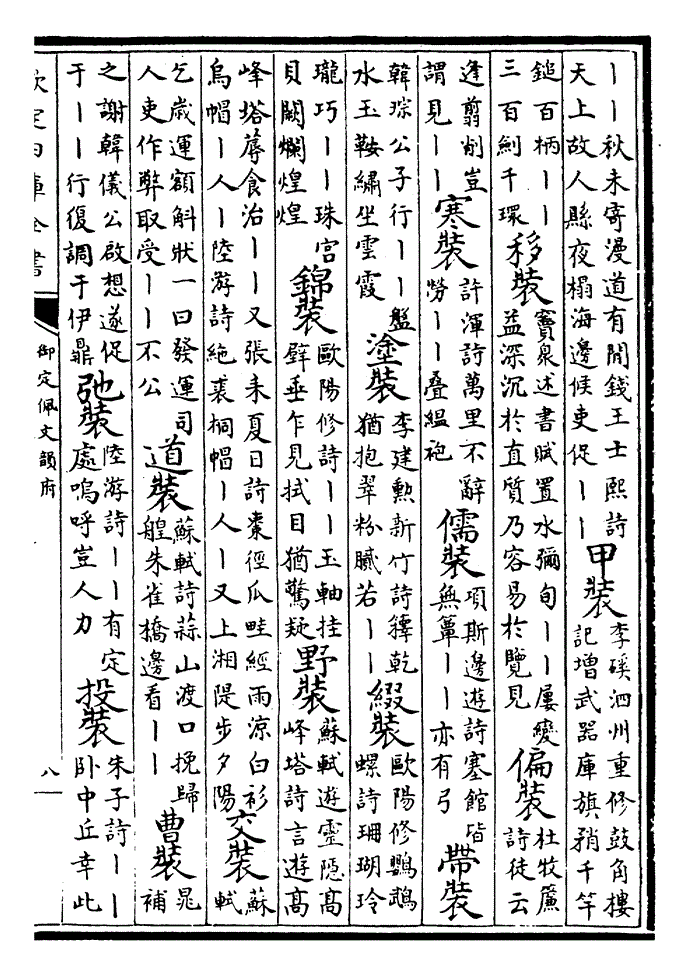 ｜｜秋未寄漫道有閒錢王士熙詩
天上故人縣夜榻海邊候吏促｜｜
甲裝
李磎泗州重修鼓角樓
記增武器庫旗矟千竿
鎚百柄｜｜
三百劍千環
移裝
竇臮述書賦置水彌旬｜｜屢變
益深沉於直質乃容易於覽見
偏裝
杜牧㢘
詩徒云
逢翦削豈
謂見｜｜
寒裝
許渾詩萬里不辭
勞｜｜疊縕袍
儒裝
項斯邊遊詩塞館皆
無簟｜｜亦有弓
帶裝
韓琮公子行｜｜盤
水玉鞍繡坐雲霞
塗裝
李建勲新竹詩籜乾
猶抱翠粉膩若｜｜
綴裝
歐陽修鸚鵡
螺詩珊瑚玲
瓏巧｜｜珠宮
貝闕爛煌煌
錦裝
歐陽修詩｜｜玉軸挂
壁垂乍見拭目猶驚疑
野裝
蘇軾遊靈隱高
峰塔詩言遊高
峰塔蓐食治｜｜又張耒夏日詩棗徑瓜畦經雨涼白衫
烏帽｜人｜陸游詩絶裘桐帽｜人｜又上湘隄步夕陽
交裝
蘇
軾
乞歲運額斛狀一曰發運司
人吏作弊取受｜｜不公
道裝
蘇軾詩蒜山渡口挽歸
艎朱雀橋邊看｜｜
曹裝
晁
補
之謝韓儀公啟想遂促
于｜｜行復調于伊鼎
弛裝
陸游詩｜｜有定
處嗚呼豈人力
投裝
朱子詩｜｜
卧中丘幸此
欽定四庫全書
御定佩文韻府
八